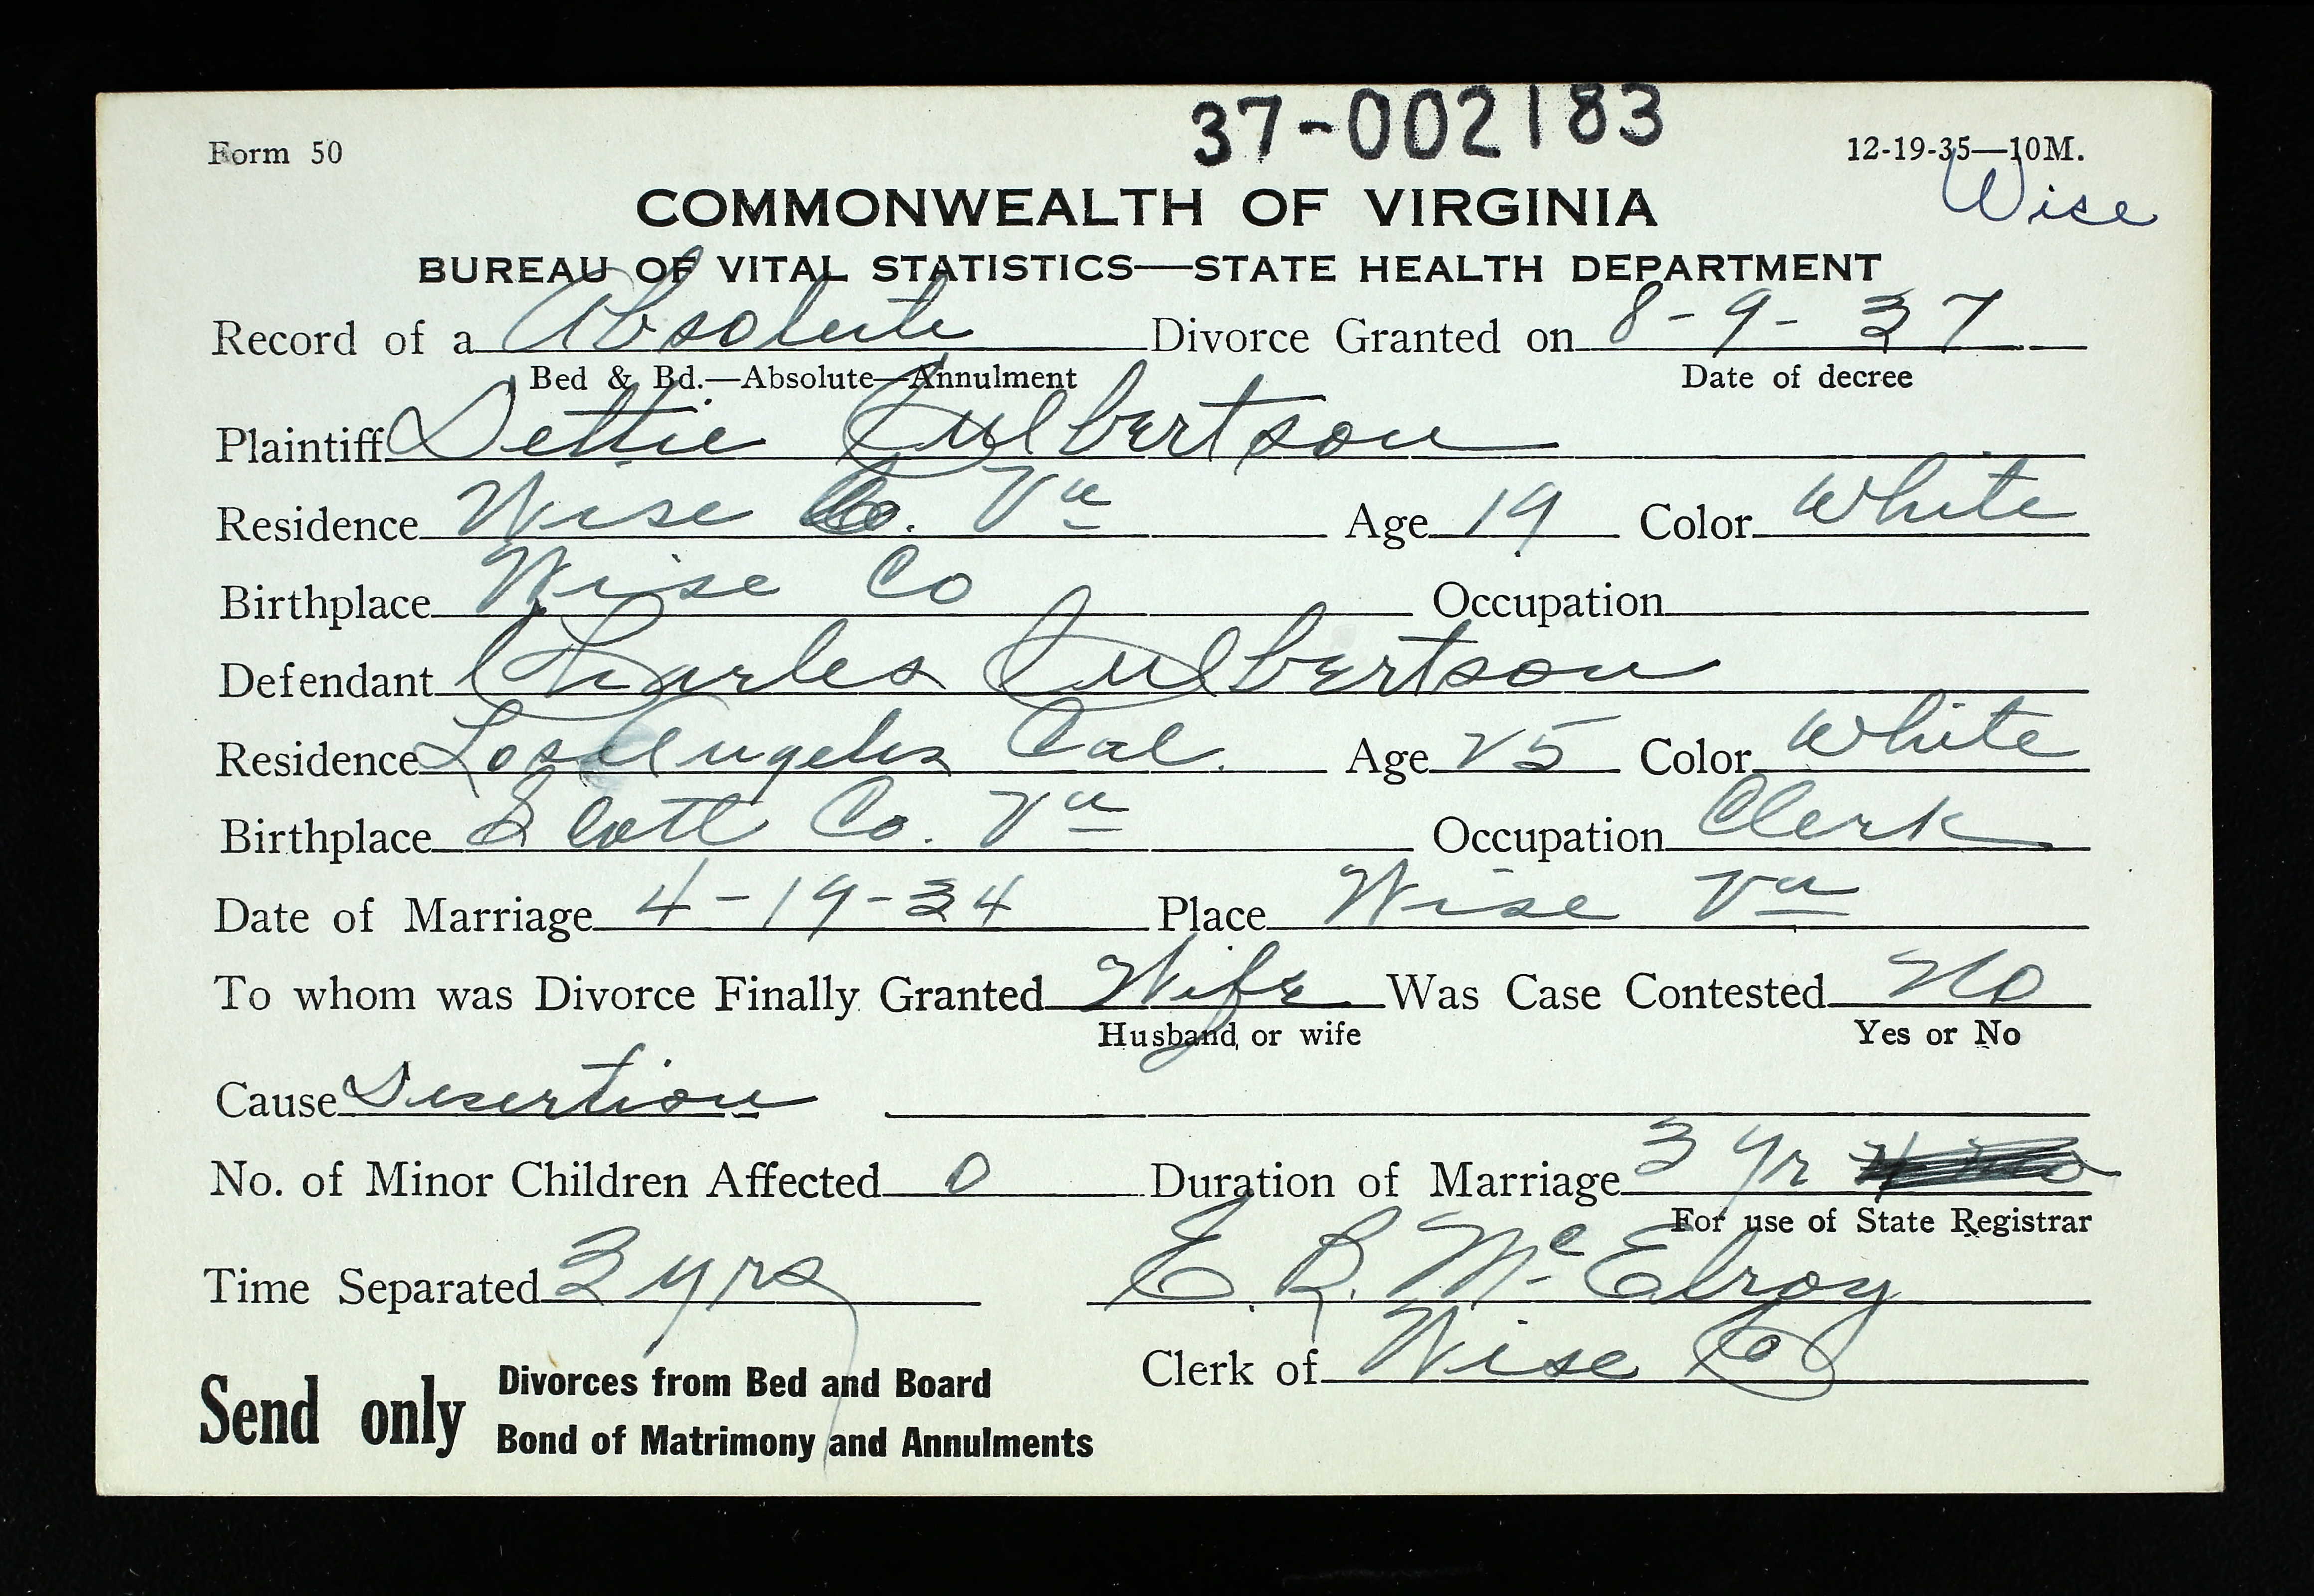 37-002183
Form 50
12-19-35—10M.
Wise
COMMONWEALTH OF VIRGINIA
BUREAU OF VITAL STATISTICS—STATE HEALTH DEPARTMENT
Record of a Absolute Divorce Granted on 8-9-37
Bed & Bd.—Absolute—Annulment Date of decree
Plaintiff Dettie Culbertson
Residence Wise Co. Va Age 19 Color White
Birthplace Wise Co Occupation
Defendant Charles Culbertson
Residence Los Angeles Cal. Age 25 Color White
Birthplace Scott Co. Va Occupation Clerk
Date of Marriage 4-19-34 Place Wise Va
To whom was Divorce Finally Granted Wife Was Case Contested No
Husband or wife Yes or No
Cause Desertion
No. of Minor Children Affected 0 Duration of Marriage 3 yr
For use of State Registrar
Time Separated 3 yrs E. R. McElroy
Clerk of Wise Co
Send only Divorces from Bed and Board
Bond of Matrimony and Annulments